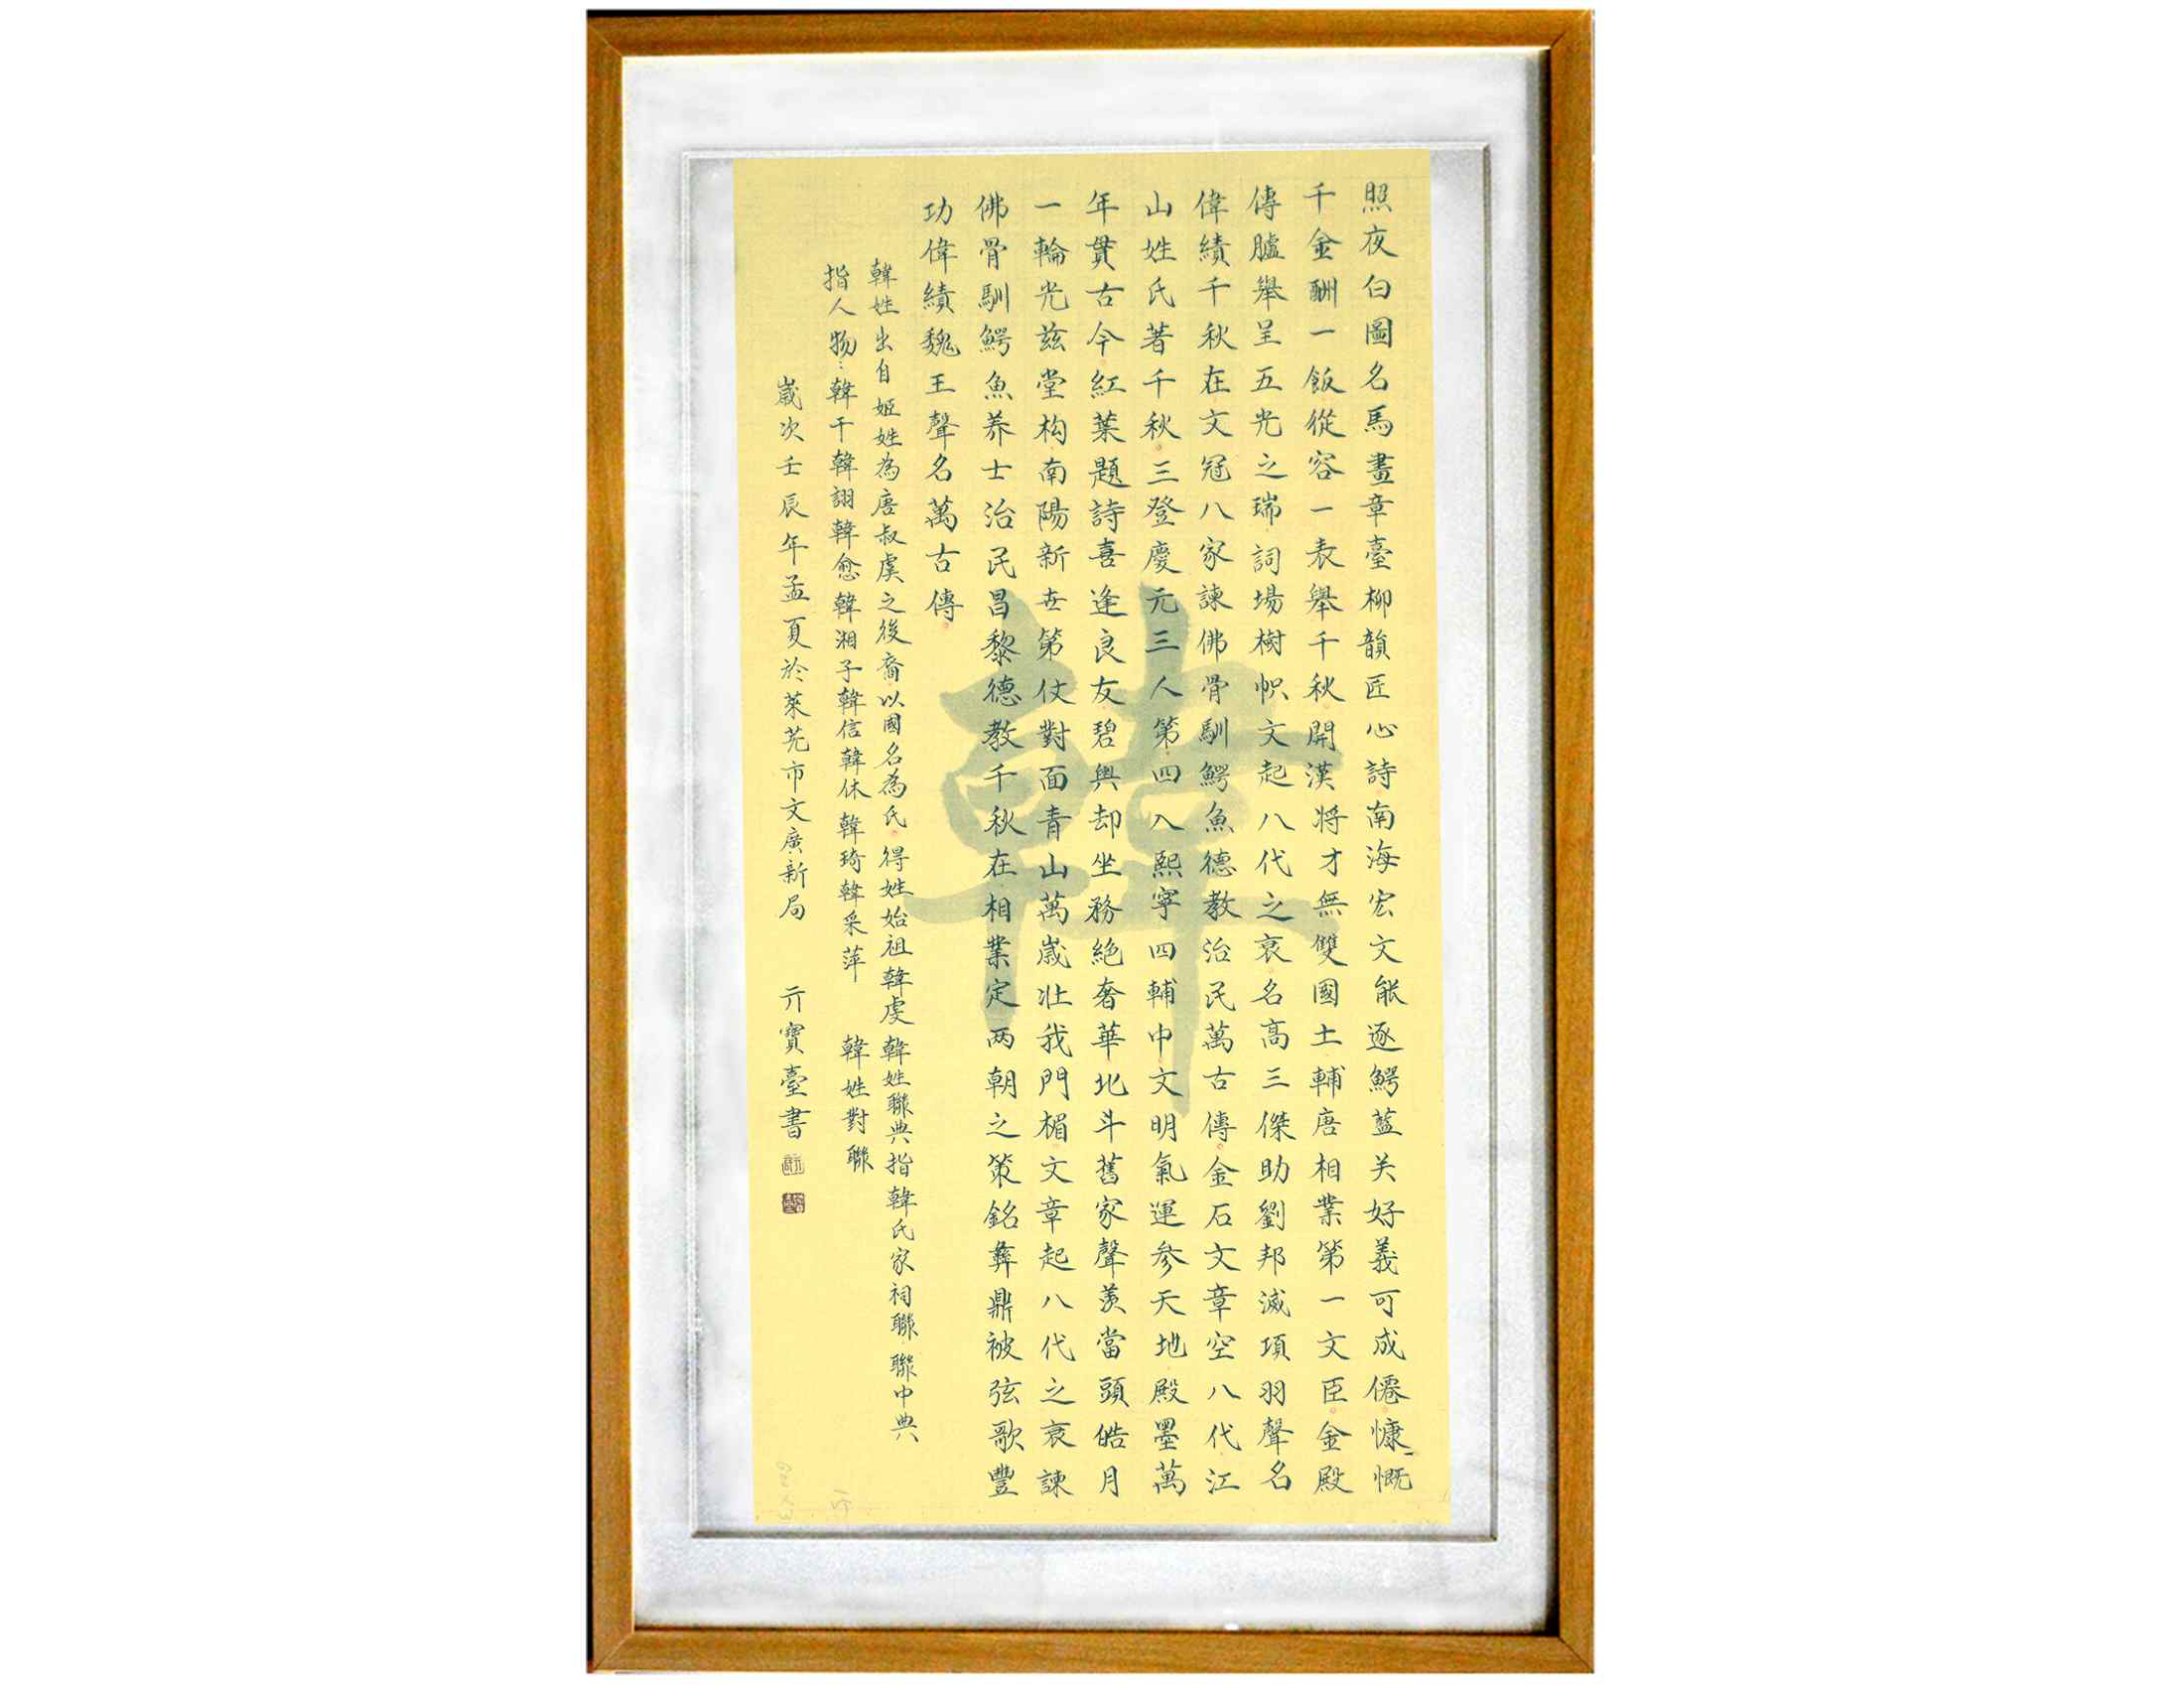 照夜白圖名馬畫章臺柳韻匠心詩南海宏文能逐鰐藍关好義可成僊慷慨
千金酬一飯從容一表舉千秋開漢将才無雙國土輔唐相業第一文臣金殿
傳臚舉呈五光之瑞詞場樹帜文起八代之衰名高三傑助劉邦滅項羽聲名
偉績千秋在文冠八家諫佛骨馴鰐魚德教治民萬古傳金石文章空八代江
山姓氏著千秋三登慶元三人第四入熙寧四輔中文明氣運參天地殿墨萬
年貫古今紅葉題詩喜逢良友碧輿却坐務絕奢華北斗舊家聲羨當頭皓月
一輪光茲堂构南陽新世第仗對面青山萬嵗壮我門楣文章起八代之衰諫
佛骨馴鰐魚养士治民昌黎德教千秋在相業定两朝之策銘彝鼎被弦歌豐
功偉績魏王聲名萬古傳
韓姓出自姬姓為唐叔虞之後裔以國名為氏得姓始祖韓虔韓姓聯典指韓氏家祠聯聯中典
指人物:韓干韓詡韓愈韓湘子韓信韓休韓琦韓采萍 韓姓對聯
嵗次壬辰年孟夏於萊芜市文廣新局 亓寶臺書
韓